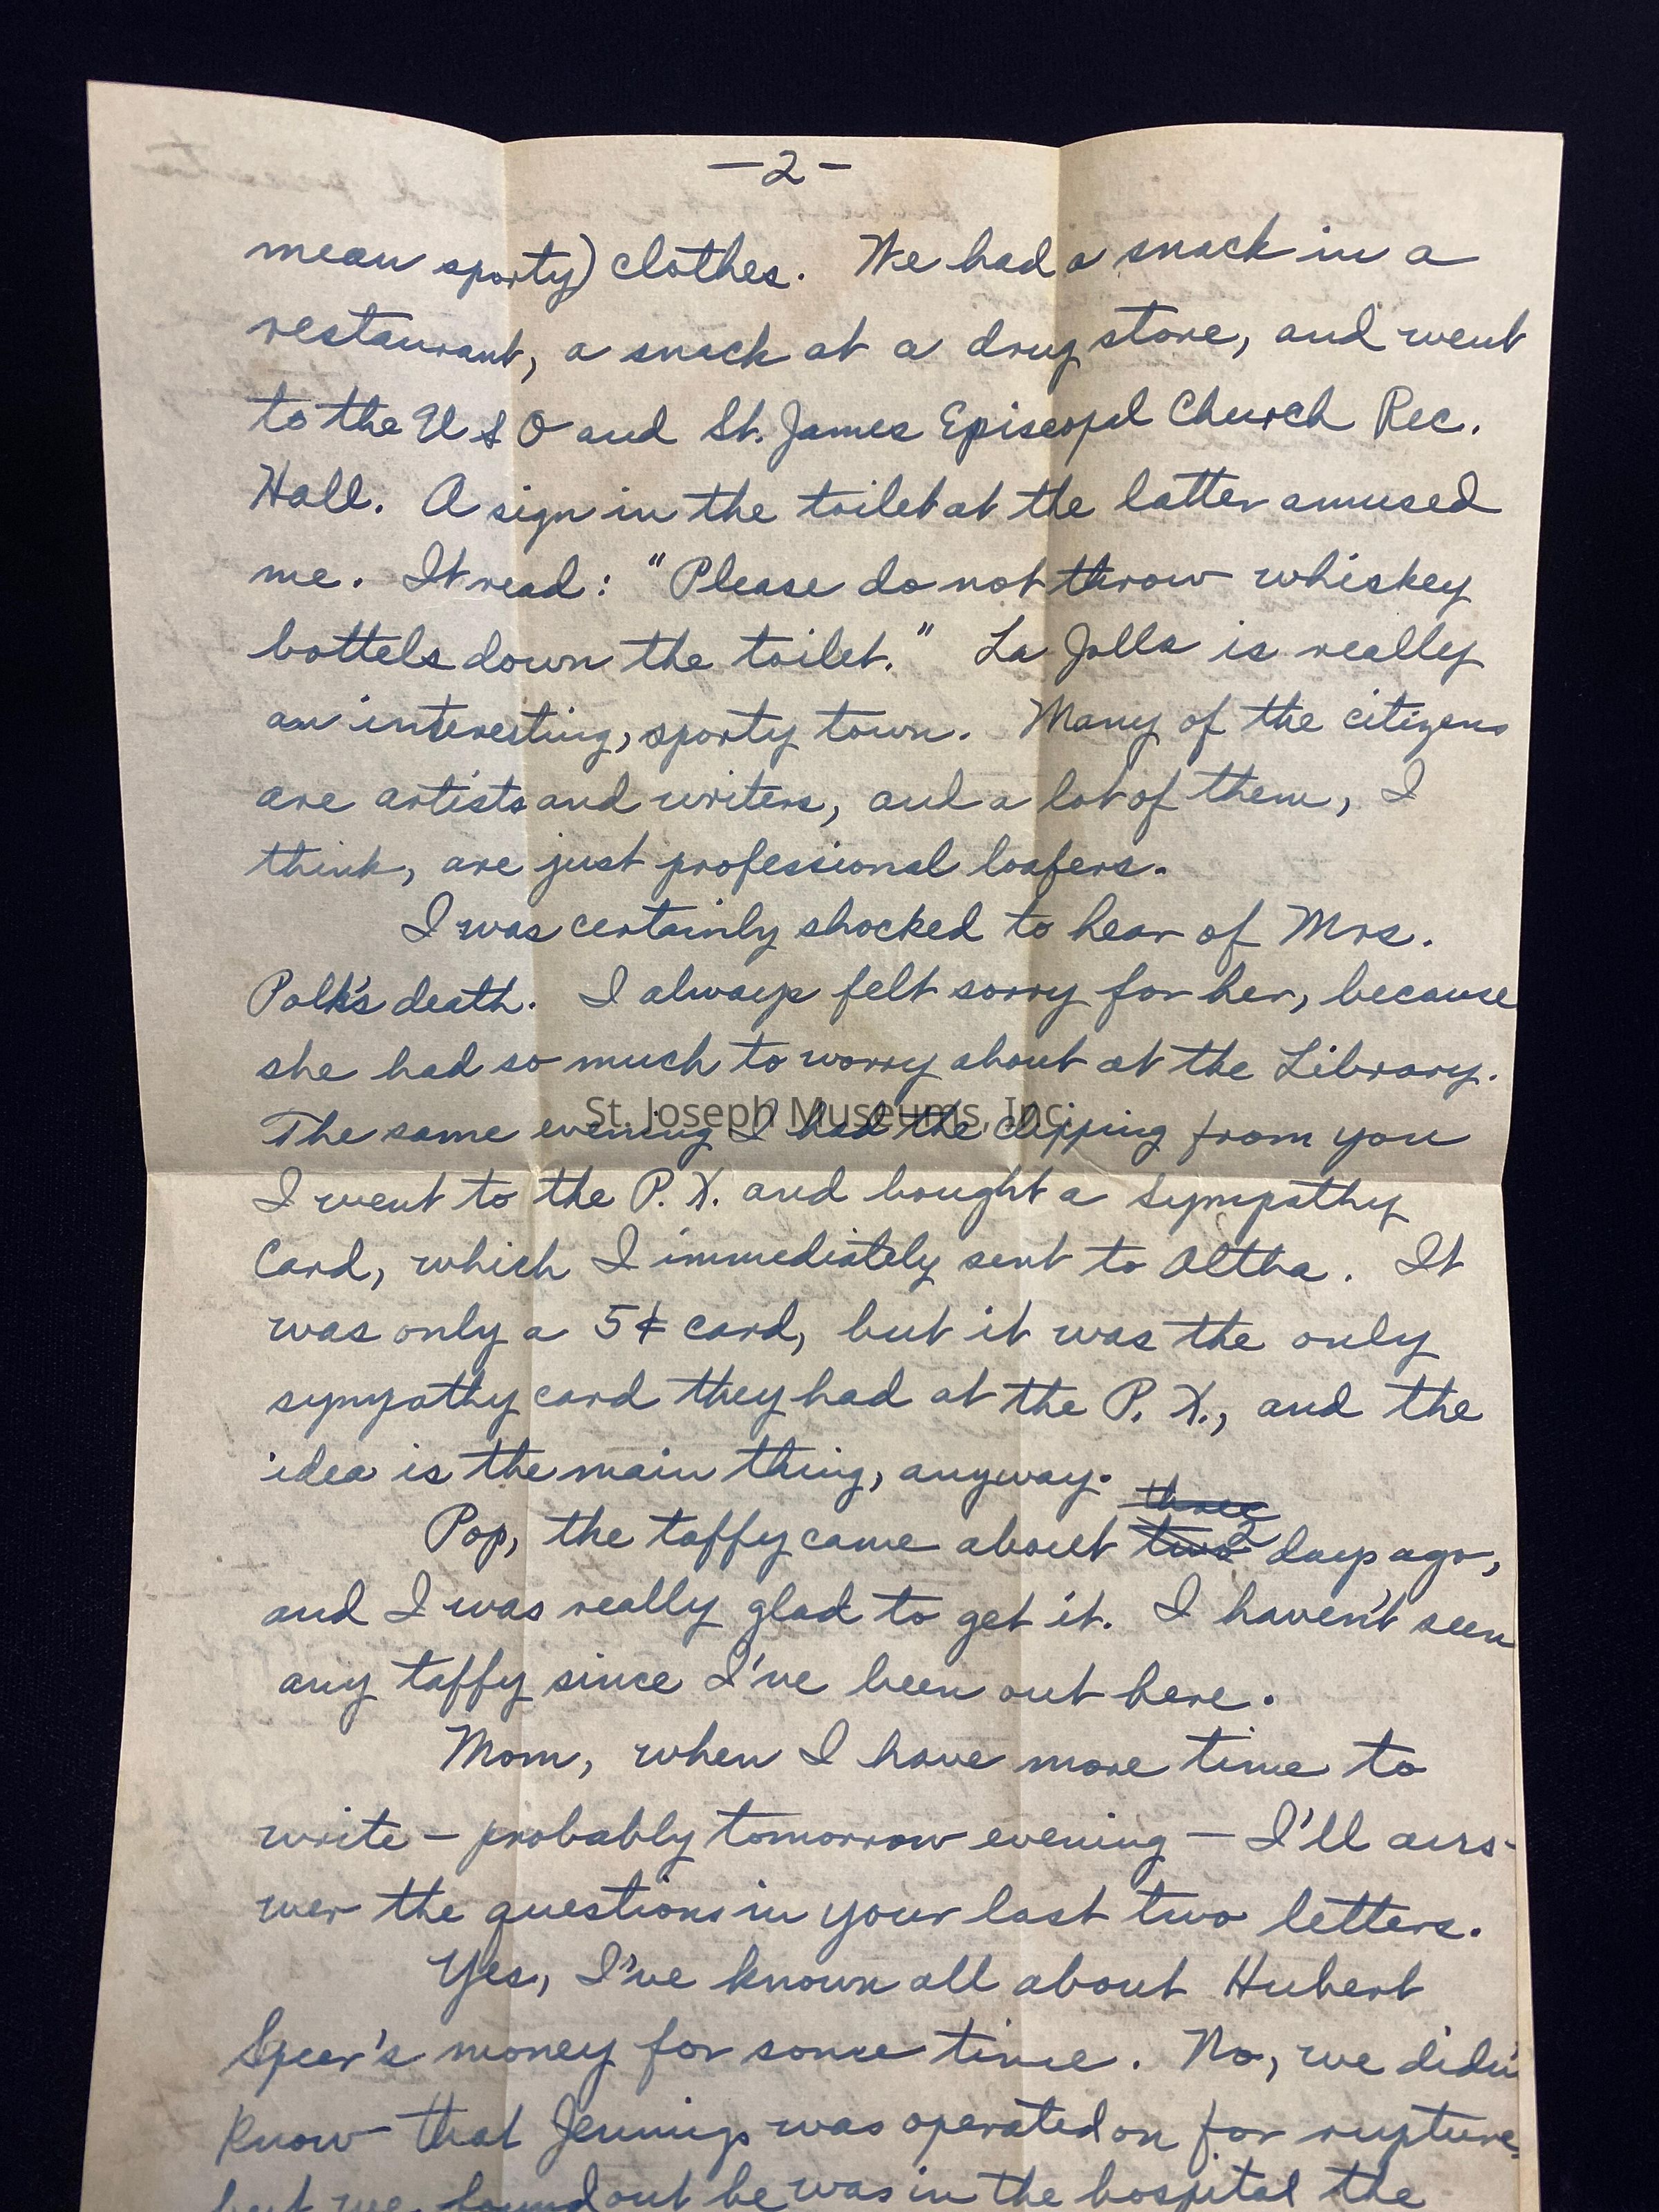 -2-
mean sporty) clothes. We had a snack in a
restaurant, a snack at a drug store, and went
to the USO and St. James Episcopal Church Rec.
Hall. A sign in the toilet at the latter amused
me. It read: "Please do not throw whiskey
bottels down the toilet." La Jolla is really
an interesting, sporty town. Many of the citizens
are artists and writers, and a lot of them, I
think, are just professional loafers.
I was certainly shocked to hear of Mrs.
Polk's death. I always felt sorry for her, because
she had so much to worry about at the Library.
The same evening I had the clipping from you
St. Joseph Museums, Inc.
I went to the P.X. and bought a sympathy
Card, which I immediately sent to Altha. It
was only a 5¢ card, but it was the only
sympathy card they had at the P. X., and the
idea is the main thing, anyway.
three
Pop, the taffy came about two 2 days ago,
and I was really glad to get it. I haven't seen
any taffy since I've been out here.
Mom, when I have more time to
write - probably tomorrow evening - I'll ans-
wer the questions in your last two letters.
Yes, I've known all about Hubert
Speer's money for some time. No, we didn'
know that Jennings was operated on for rupture,
but we found out he was in the hospital the